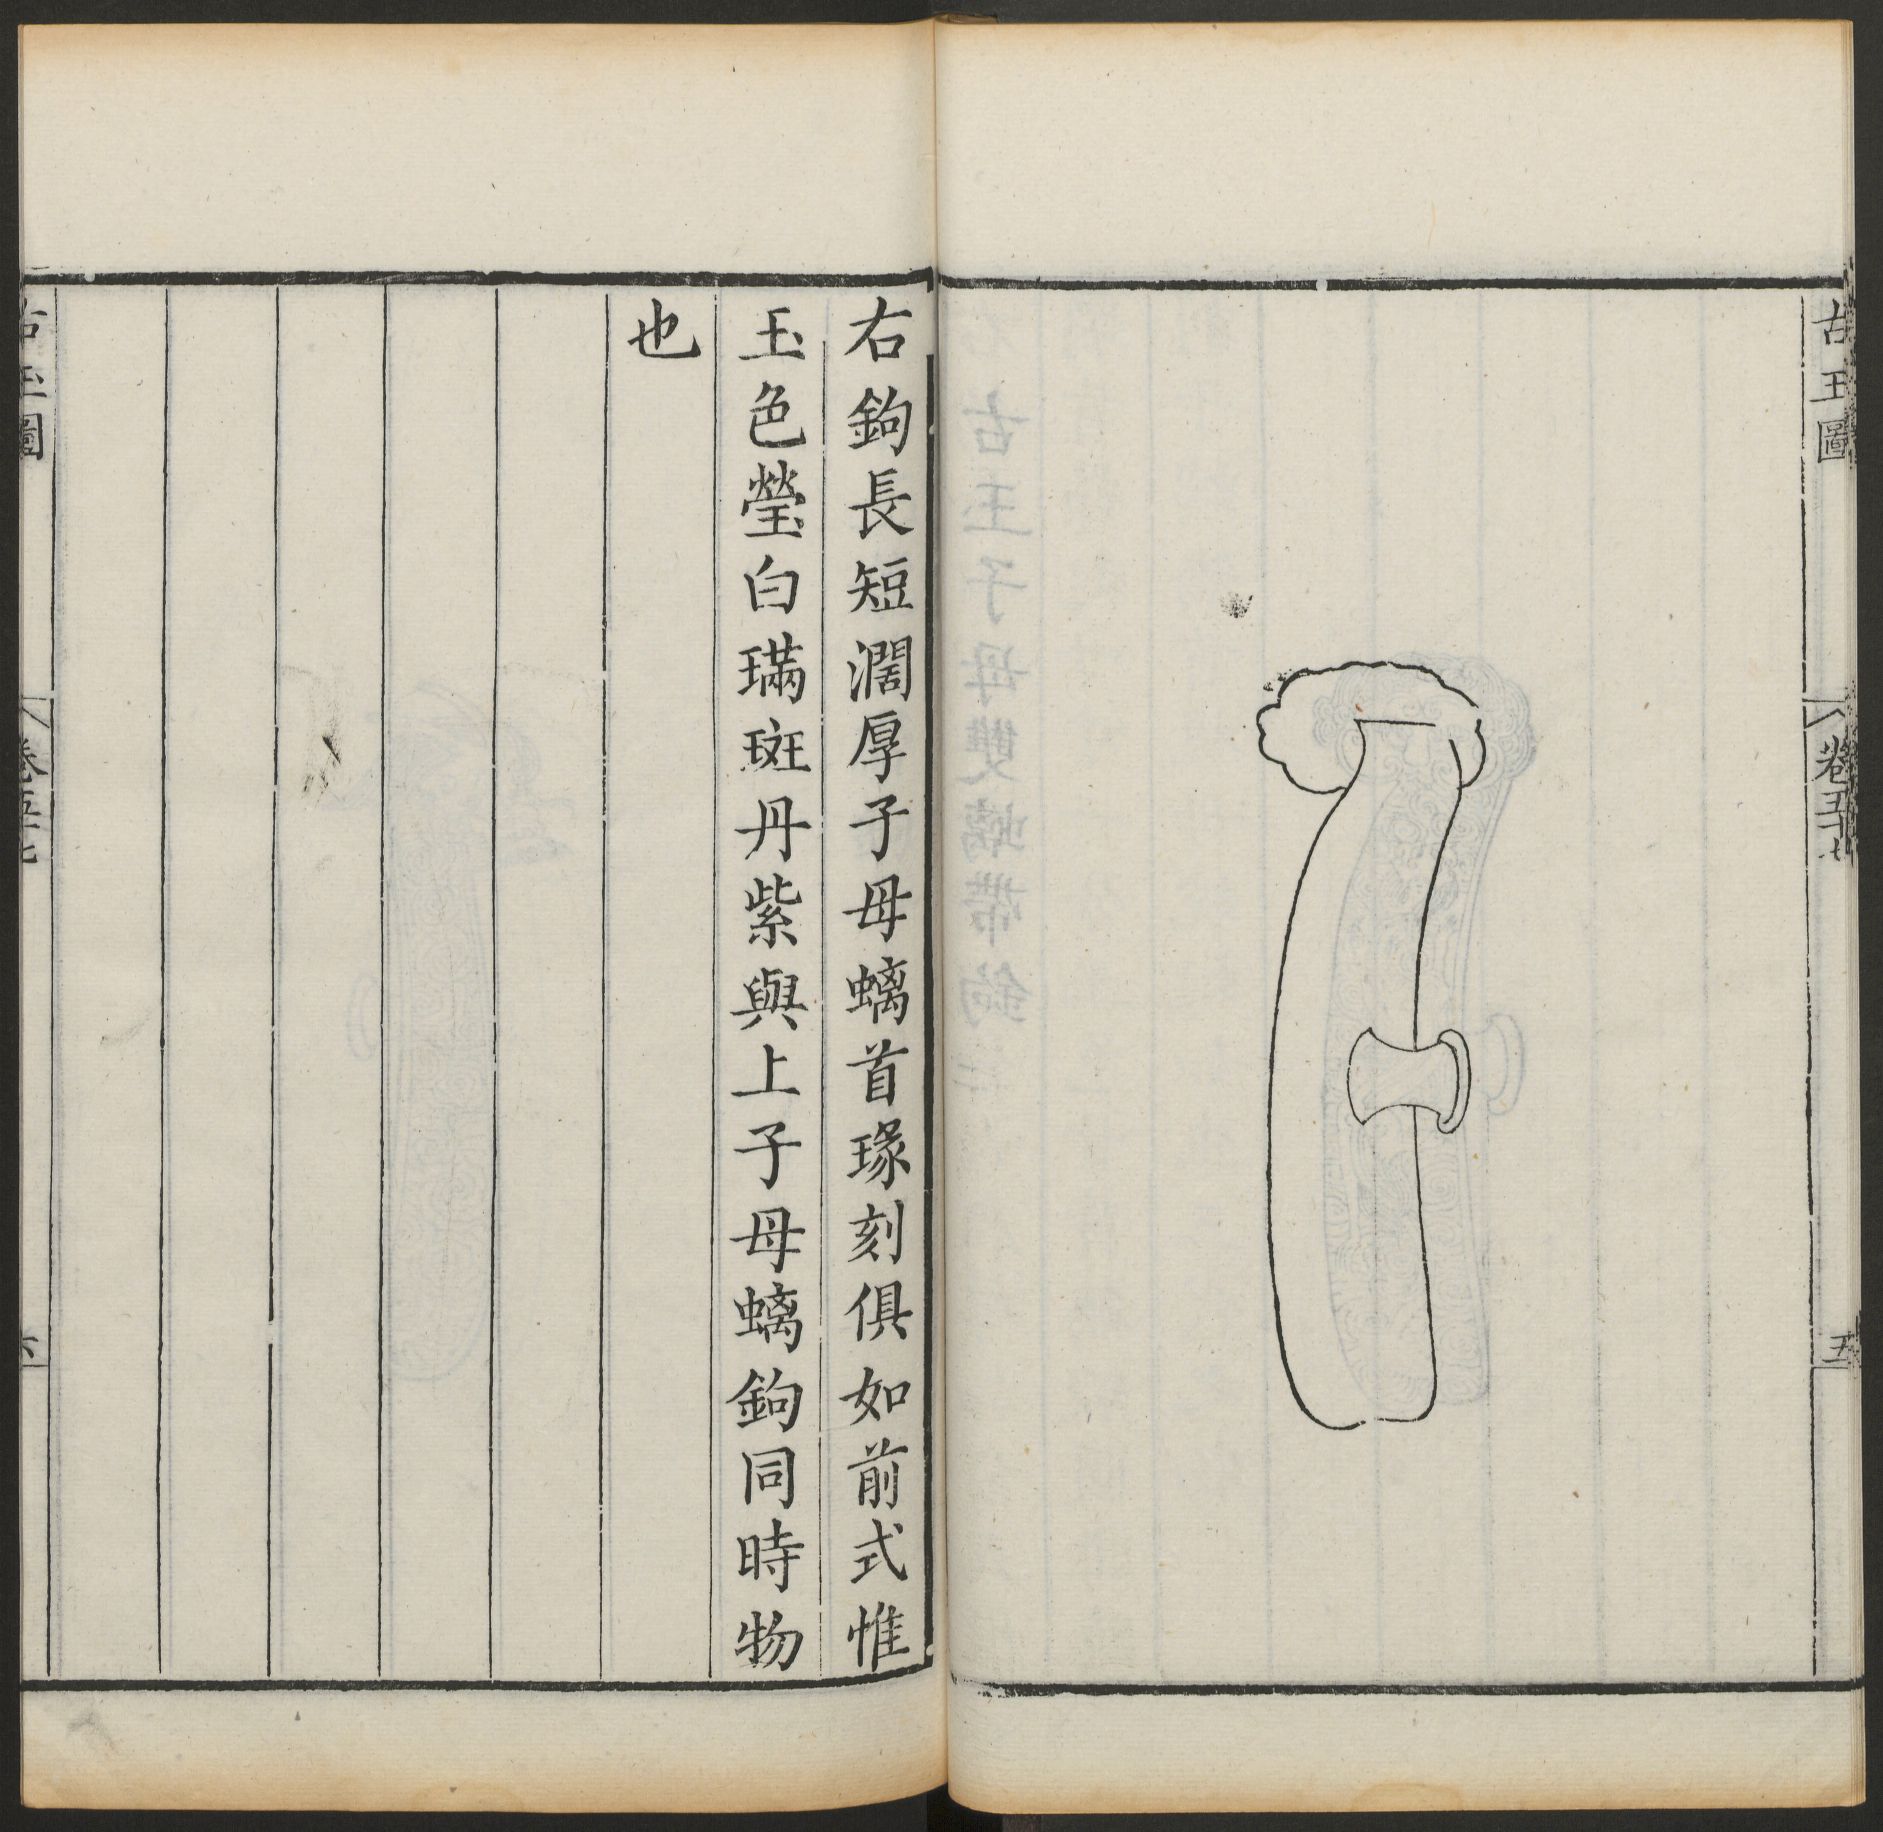 古玉圖
卷五十七
五
右鉤長短濶厚子母螭首瑑刻俱如前式惟
玉色瑩白璊斑丹紫與上子母螭鉤同時物
也
古玉圖
卷五十七
六